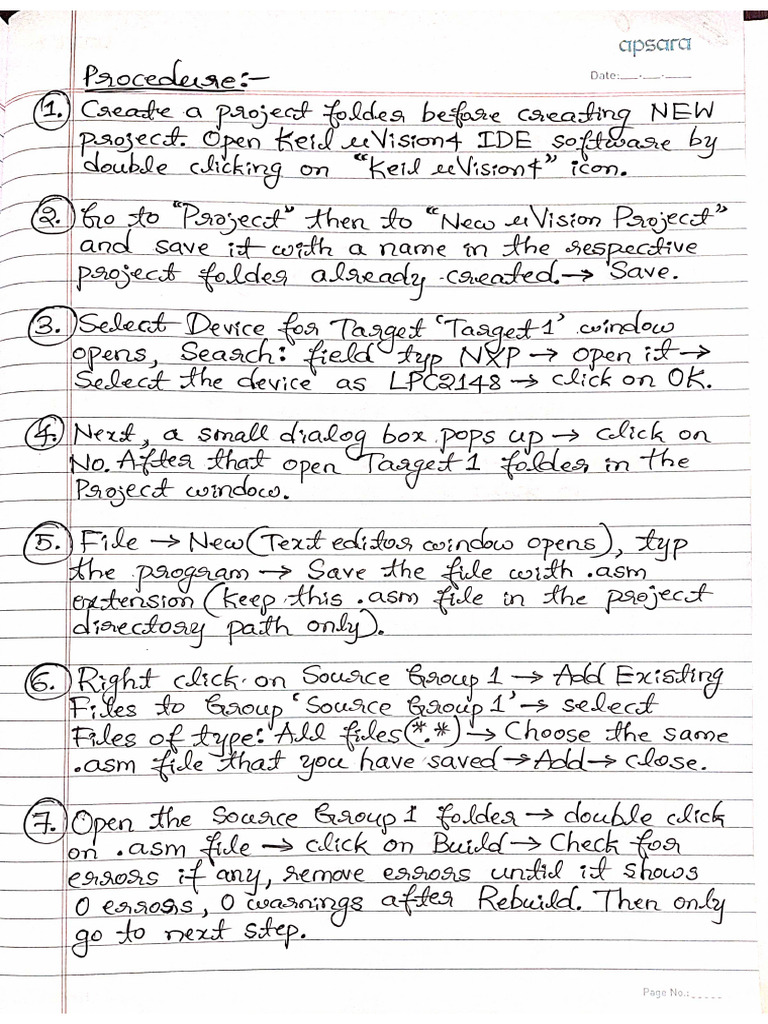 apsara
Date:__.__.____
Procedure:-
1. Create a project folder before creating NEW
project. Open Keil uVision4 IDE software by
double clicking on "Keil uVision4" icon.
2. Go to "Project" then to "New uVision Project"
and save it with a name in the respective
project folder already created.→ Save.
3. Select Device for Target 'Target 1' window
opens, Search: field typ NXP → open it →
Select the device as LPC2148 → click on OK.
4. Next, a small dialog box pops up → click on
No. After that open Target 1 folder in the
Project window.
5. File → New (Text editor window opens), typ
the program → Save the file with .asm
extension (keep this .asm file in the project
directory path only).
6. Right click on Source Group 1 → Add Existing
Files to Group 'Source Group 1' → select
Files of type: All files (*.*) → Choose the same
.asm file that you have saved → Add → close.
7. Open the Source Group 1 folder → double click
on .asm file → click on Build → Check for
errors if any, remove errors until it shows
0 errors, 0 warnings after Rebuild. Then only
go to next step.
Page No.:_____